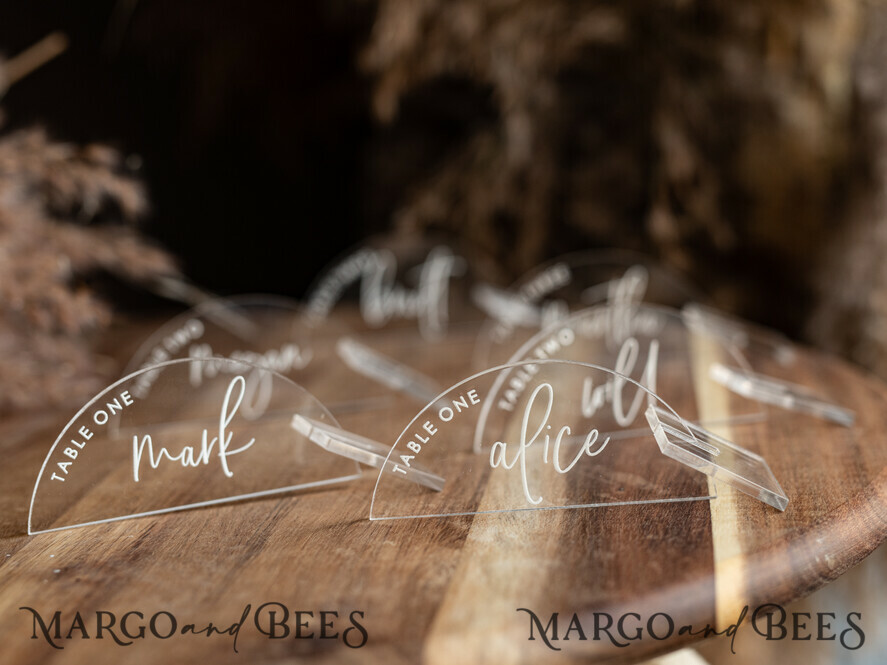 TABLE ONE
mark
TABLE ONE
alice
TABLE TWO
will
TABLE TWO
MARGO and BEES
MARGO and BEES